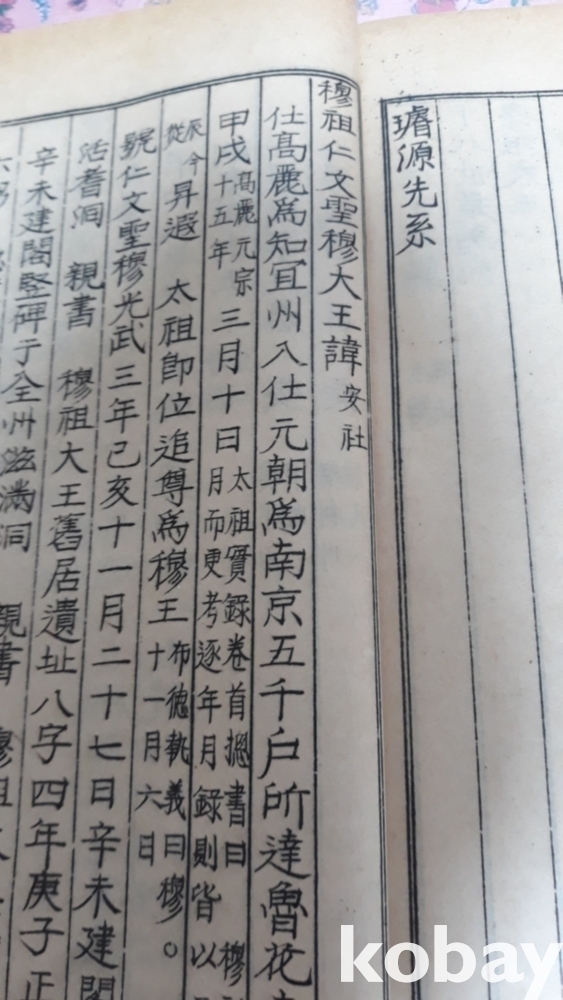 璿源先系
穆祖仁文聖穆大王諱安社
仕高麗爲知宜州入仕元朝爲南京五千戶所達魯花
甲戌高麗元宗十五年三月十日太祖實錄卷首摠書曰穆月而更考逐年月錄則皆以
辰今從昇遐 太祖卽位追尊爲穆王布德執義曰穆○十一月六日
號仁文聖穆光武三年己亥十一月二十七日辛未建閣
活耆洞 親書 穆祖大王舊居遺址八字四年庚子正
辛未建閣竪碑于全州滋滿洞 親書 穆祖
kobay